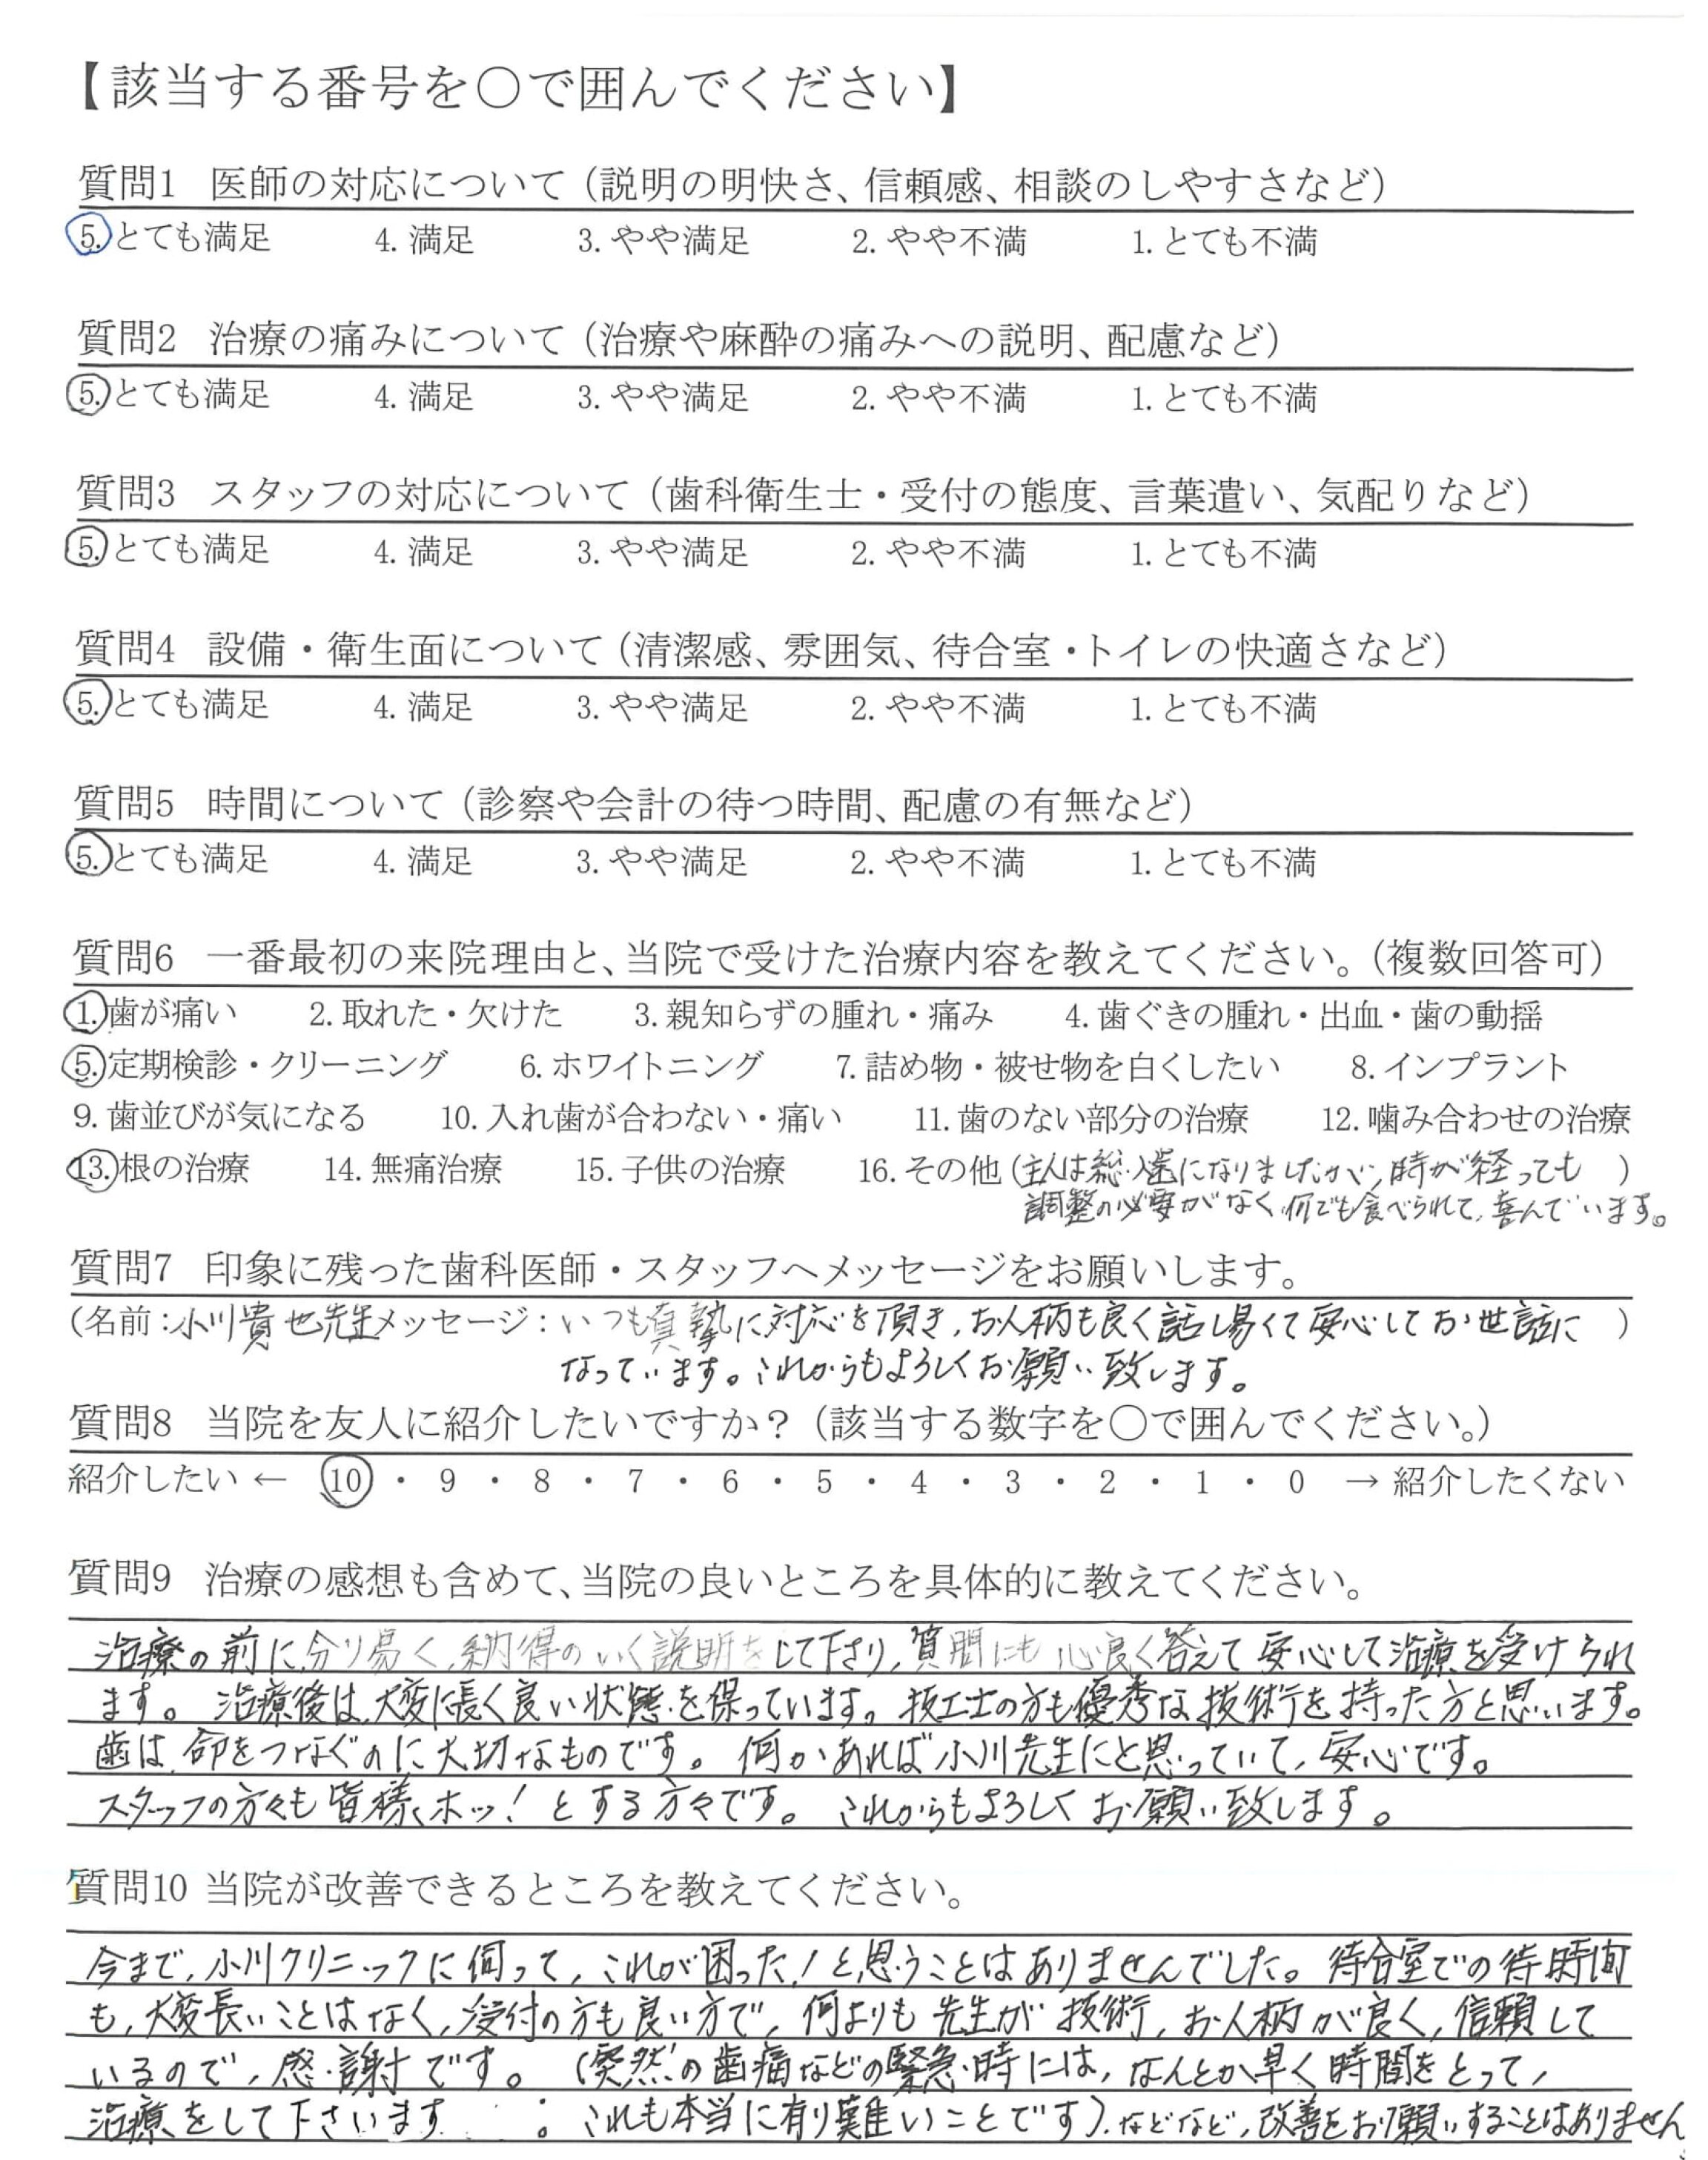 【該当する番号を〇で囲んでください】
質問1 医師の対応について（説明の明快さ、信頼感、相談のしやすさなど）
5. とても満足 4. 満足 3. やや満足 2. やや不満 1. とても不満
質問2 治療の痛みについて（治療や麻酔の痛みへの説明、配慮など）
5. とても満足 4. 満足 3. やや満足 2. やや不満 1. とても不満
質問3 スタッフの対応について（歯科衛生士・受付の態度、言葉遣い、気配りなど）
5. とても満足 4. 満足 3. やや満足 2. やや不満 1. とても不満
質問4 設備・衛生面について（清潔感、雰囲気、待合室・トイレの快適さなど）
5. とても満足 4. 満足 3. やや満足 2. やや不満 1. とても不満
質問5 時間について（診察や会計の待つ時間、配慮の有無など）
5. とても満足 4. 満足 3. やや満足 2. やや不満 1. とても不満
質問6 一番最初の来院理由と、当院で受けた治療内容を教えてください。（複数回答可）
1. 歯が痛い 2. 取れた・欠けた 3. 親知らずの腫れ・痛み 4. 歯ぐきの腫れ・出血・歯の動揺
5. 定期検診・クリーニング 6. ホワイトニング 7. 詰め物・被せ物を白くしたい 8. インプラント
9. 歯並びが気になる 10. 入れ歯が合わない・痛い 11. 歯のない部分の治療 12. 噛み合わせの治療
13. 根の治療 14. 無痛治療 15. 子供の治療 16. その他（主人は総入歯になりましたが、時が経っても ）
調整の必要がなく、何でも食べられて、喜んでいます。
質問7 印象に残った歯科医師・スタッフへメッセージをお願いします。
（名前：小川貴也先生メッセージ：いつも真摯に対応を頂き、お人柄も良く話し易くて安心してお世話に ）
なっています。これからもよろしくお願い致します。
質問8 当院を友人に紹介したいですか？（該当する数字を〇で囲んでください。）
紹介したい ← 10 ・ 9 ・ 8 ・ 7 ・ 6 ・ 5 ・ 4 ・ 3 ・ 2 ・ 1 ・ 0 → 紹介したくない
質問9 治療の感想も含めて、当院の良いところを具体的に教えてください。
治療の前に、分り易く、納得のいく説明をして下さり、質問にも心良く答えて安心して治療を受けられ
ます。治療後は、大変に長く良い状態を保っています。技工士の方も優秀な技術を持った方と思います。
歯は、命をつなぐのに大切なものです。何かあれば小川先生にと思っていて、安心です。
スタッフの方々も皆様、ホッ！とする方々です。これからもよろしくお願い致します。
質問10 当院が改善できるところを教えてください。
今まで、小川クリニックに伺って、これが困った！と思うことはありませんでした。待合室での待時間
も、大変長いことはなく、受付の方も良い方で、何よりも先生が技術、お人柄が良く、信頼して
いるので、感謝です。（突然の歯痛などの緊急時には、なんとか早く時間をとって、
治療をして下さいます。これも本当に有り難いことです）、などなど、改善をお願いすることはありません